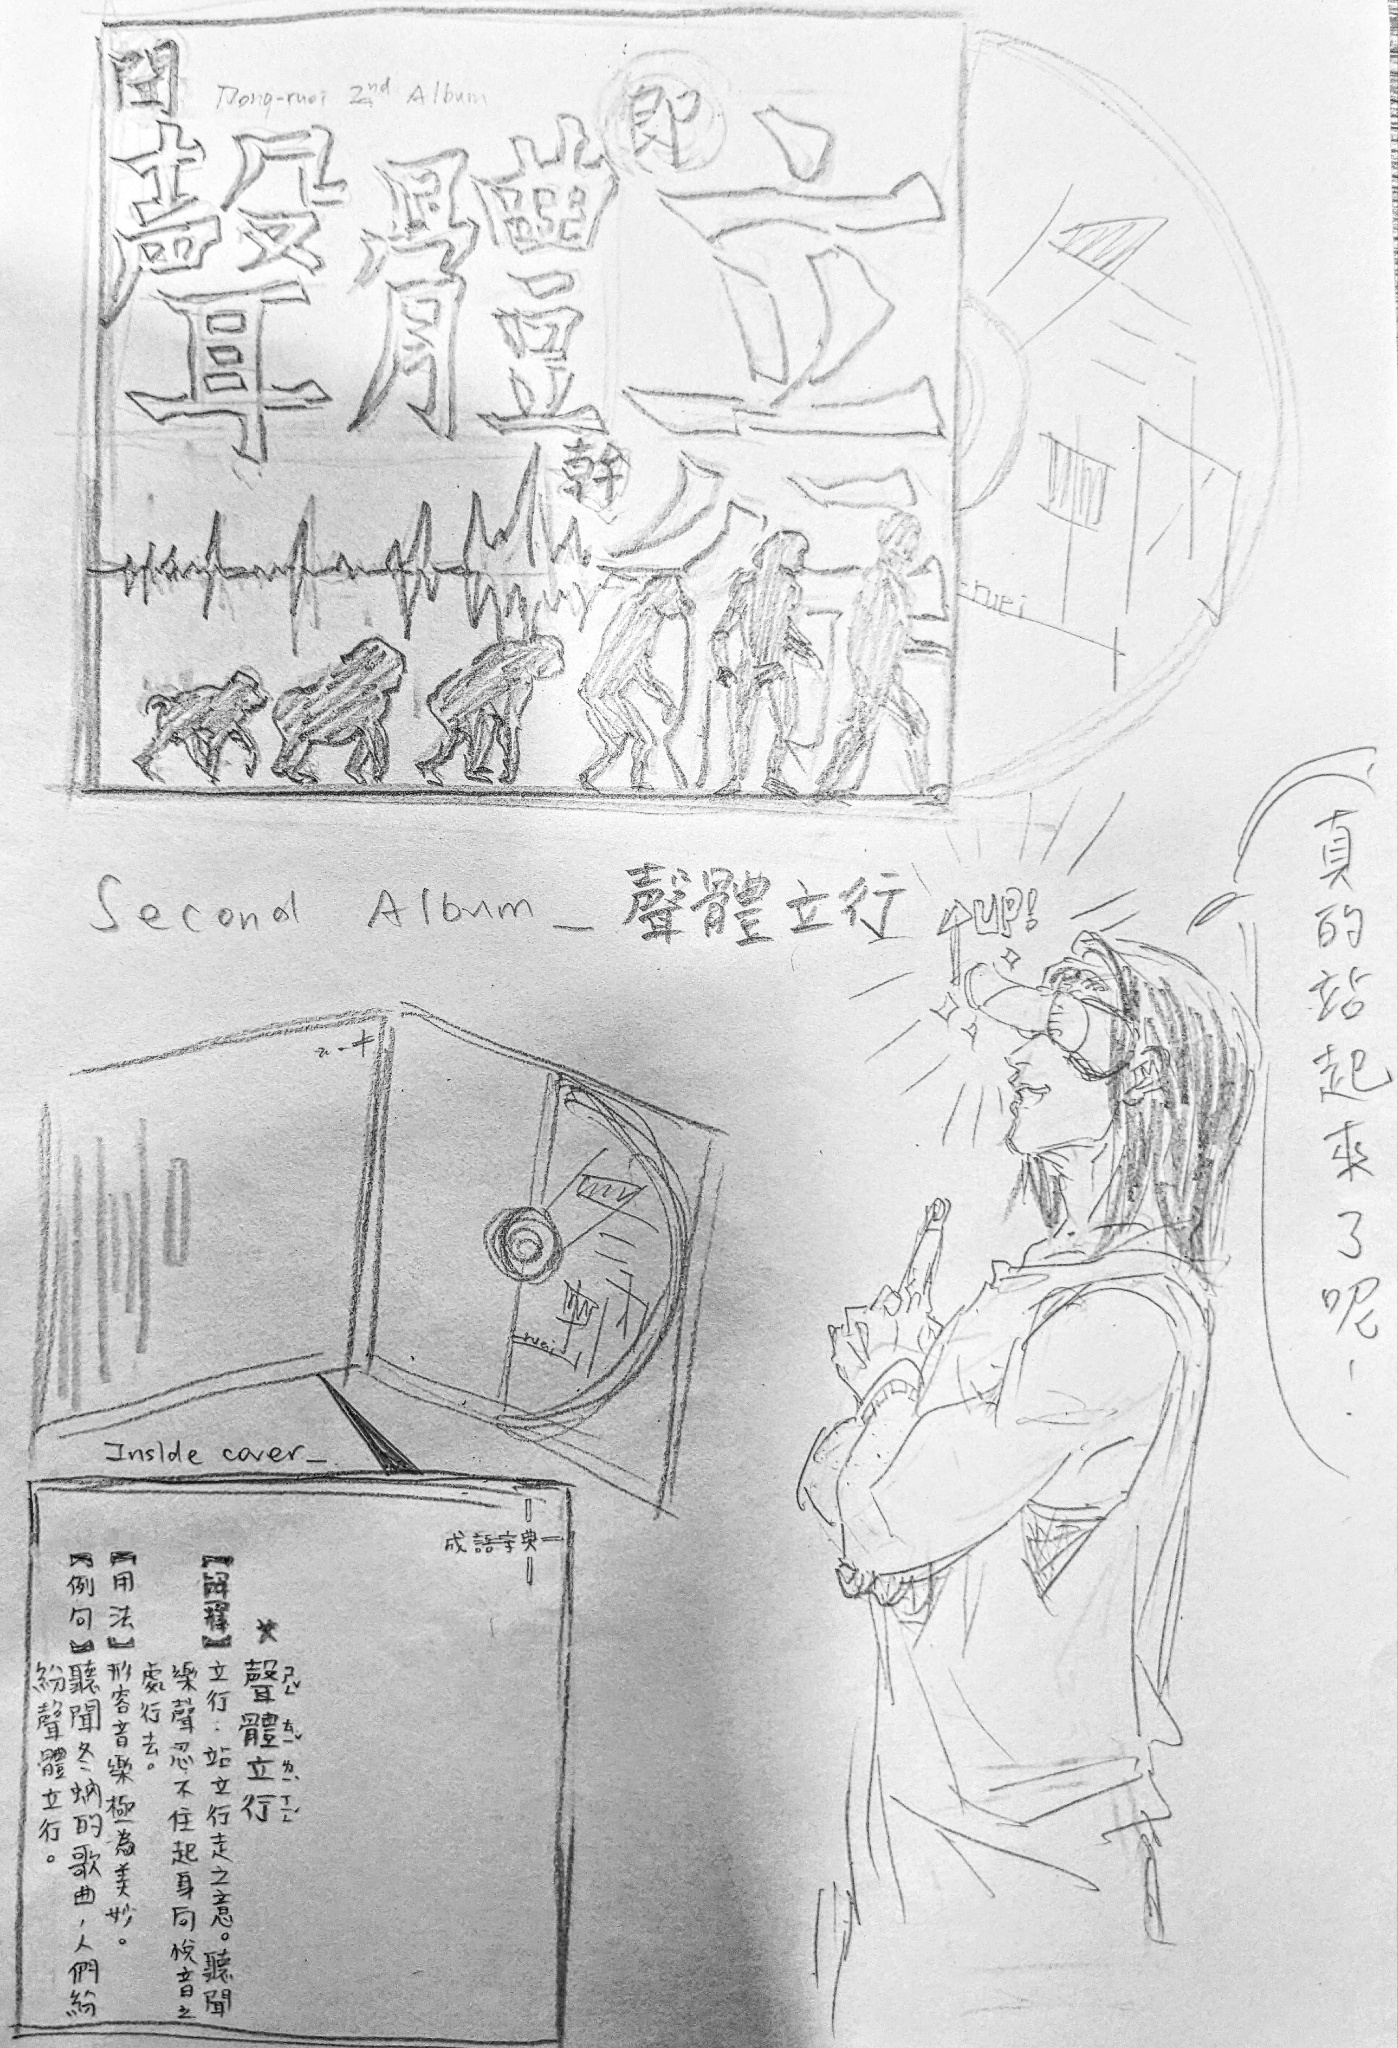 聞
Dong-ruei 2nd Album
聲體
即
立
幹
行
-ruei
Second Album_聲體立行
UP!
真的站起來了呢!
-ruei
Inside cover_
成語字典
聲體立行
ㄕㄥ ㄊㄧˇ ㄌㄧˋ ㄒㄧㄥˊ
【解釋】立行:站立行走之意。聽聞
樂聲忍不住起身向悅音之
處行去。
【用法】形容音樂極為美妙。
【例句】聽聞冬蚋的歌曲,人們紛
紛聲體立行。